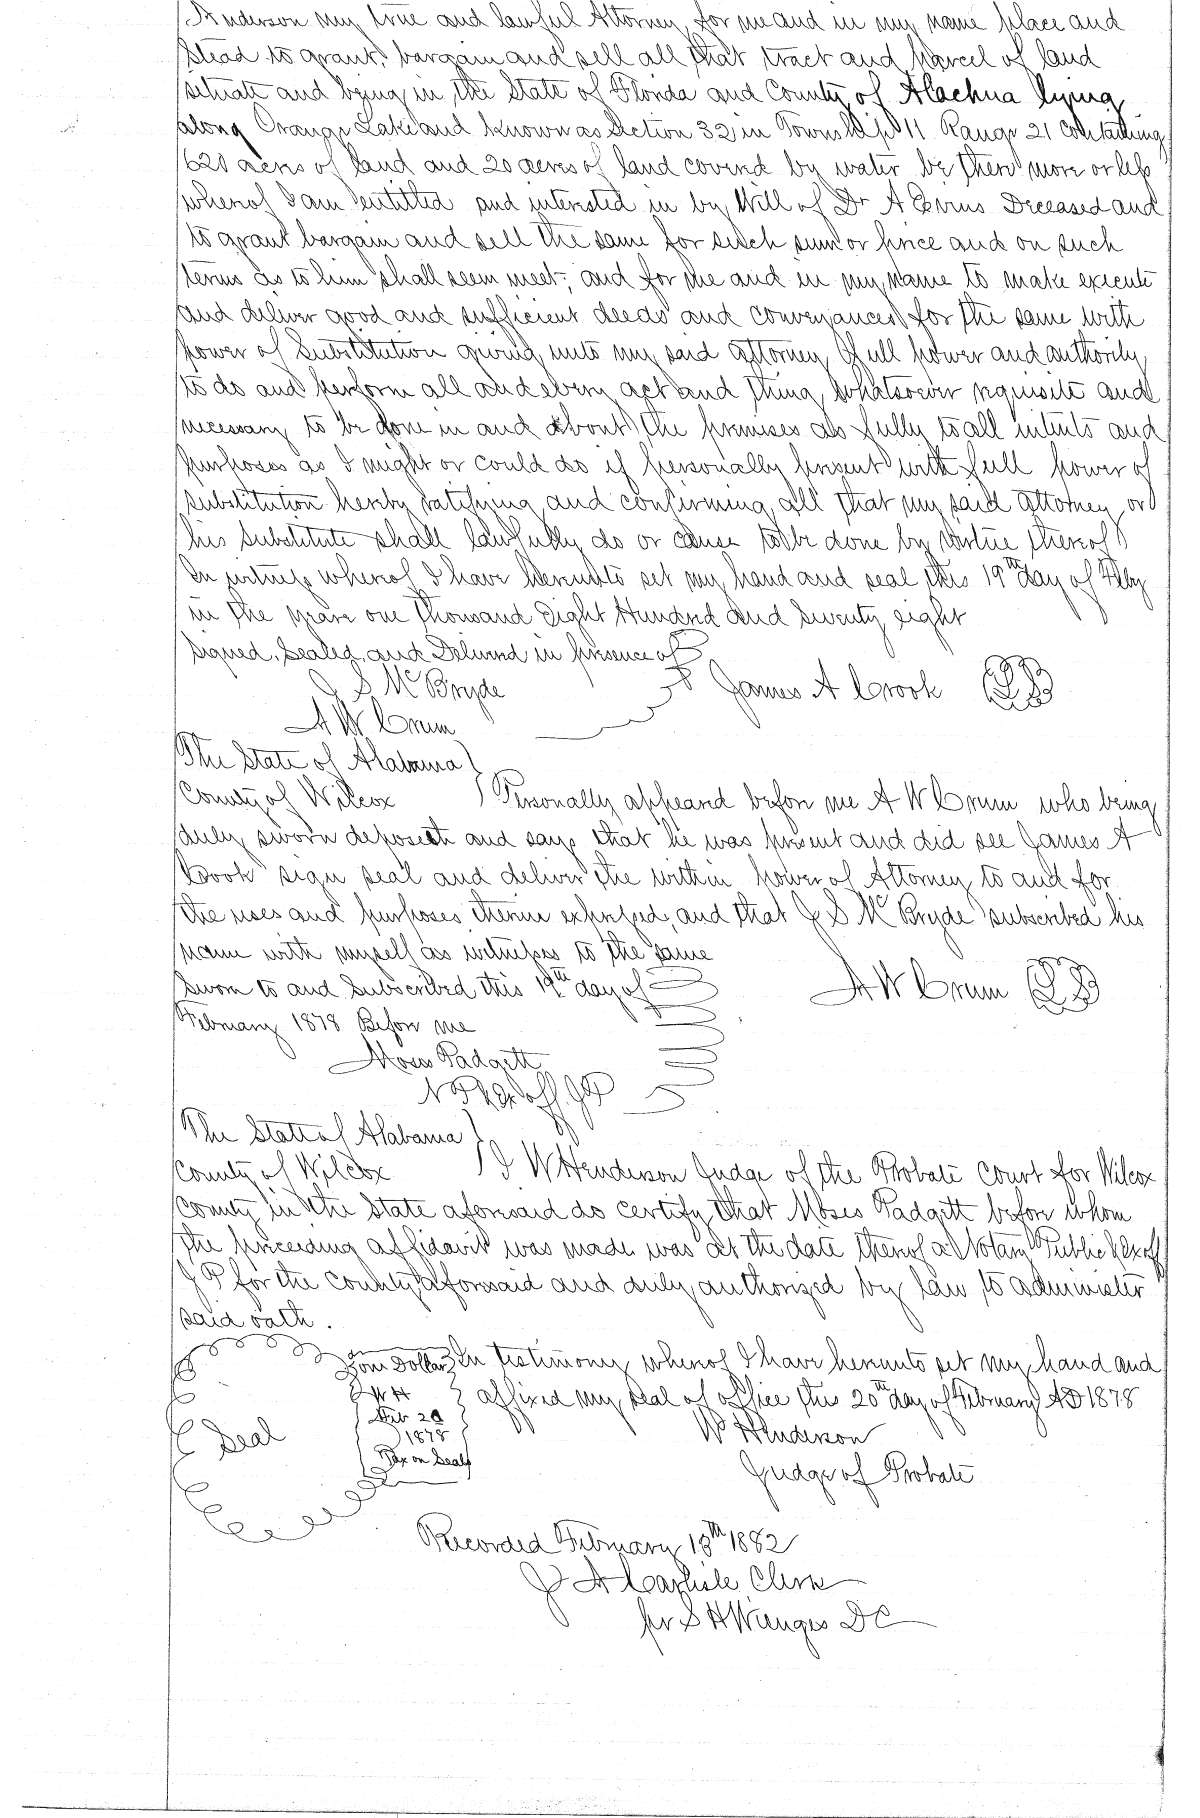 Anderson my true and lawful Attorney, for me and in my name place and
stead to grant, bargain and sell all that tract and parcel of land
situate and being in the State of Florida and County of Alachua lying
along Orange Lake and known as Section 32 in Township 11 Range 21 containing
620 acres of land and 20 acres of land covered by water be there more or less
whereof I am entitled and interested in by Will of Dr A Deceased and
to grant bargain and sell the same for such sum or price and on such
terms as to him shall seem meet, and for me and in my name to make execute
and deliver good and sufficient deeds and conveyances for the same with
power of Substitution giving unto my said attorney full power and authority
to do and perform all and every act and thing whatsoever requisite and
necessary to be done in and about the premises as fully to all intents and
purposes as I might or could do if personally present with full power of
substitution hereby ratifying and confirming all that my said attorney or
his substitute shall lawfully do or cause to be done by virtue thereof
In witness whereof I have hereunto set my hand and seal this 19th day of Feby
in the year one thousand Eight Hundred and Seventy eight
Signed, Sealed and Delivered in presence of
J S McBryde James A Crook LS
A W Crum
The State of Alabama }
County of Wilcox } Personally appeared before me A W Crum who being
duly sworn deposeth and says that he was present and did see James A
Crook sign seal and deliver the within power of Attorney to and for
the uses and purposes therein expressed, and that J S McBryde subscribed his
name with myself as witness to the same
Sworn to and Subscribed this 19th day of A W Crum LS
February 1878 Before me
Moses Padgett
N P & Ex off J P
The State of Alabama }
County of Wilcox } I W Henderson Judge of the Probate Court for Wilcox
County in the State aforesaid do certify that Moses Padgett before whom
the preceeding affidavit was made was at the date thereof a Notary Public & Ex off
J P for the County aforesaid and duly authorized by law to administer
said oath.
One Dollar In testimony whereof I have hereunto set my hand and
W H affixed my seal of office this 20th day of February AD 1878
Feb 20
1878 W Henderson
Seal
Tax on Seal
Judge of Probate
Recorded February 18th 1882
J A Carlisle Clerk
per S H Wienges D C